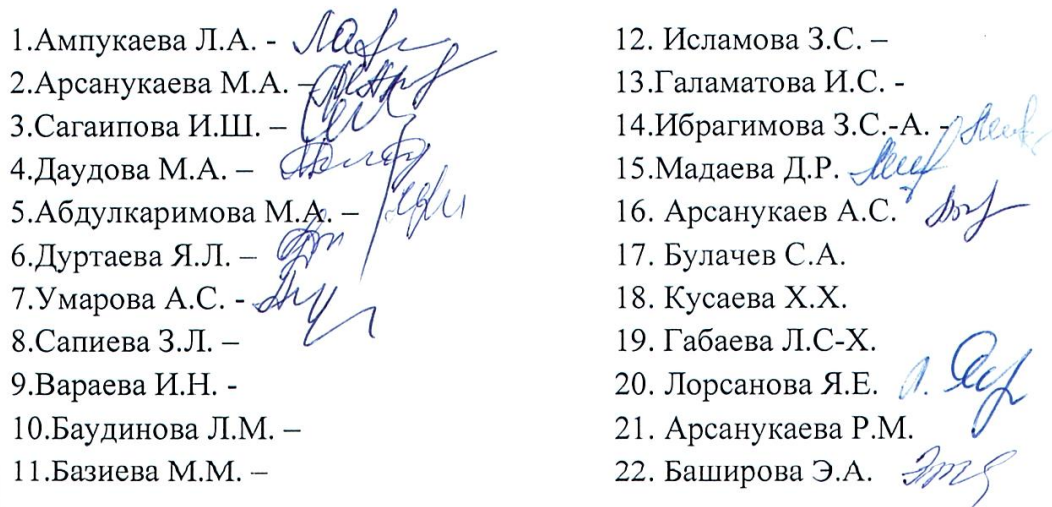 1.Ампукаева Л.А. -
2.Арсанукаева М.А. –
3.Сагаипова И.Ш. –
4.Даудова М.А. –
5.Абдулкаримова М.А. –
6.Дуртаева Я.Л. –
7.Умарова А.С. -
8.Сапиева З.Л. –
9.Вараева И.Н. -
10.Баудинова Л.М. –
11.Базиева М.М. –
12. Исламова З.С. –
13.Галаматова И.С. -
14.Ибрагимова З.С.-А. -
15.Мадаева Д.Р.
16. Арсанукаев А.С.
17. Булачев С.А.
18. Кусаева Х.Х.
19. Габаева Л.С-Х.
20. Лорсанова Я.Е.
21. Арсанукаева Р.М.
22. Баширова Э.А.